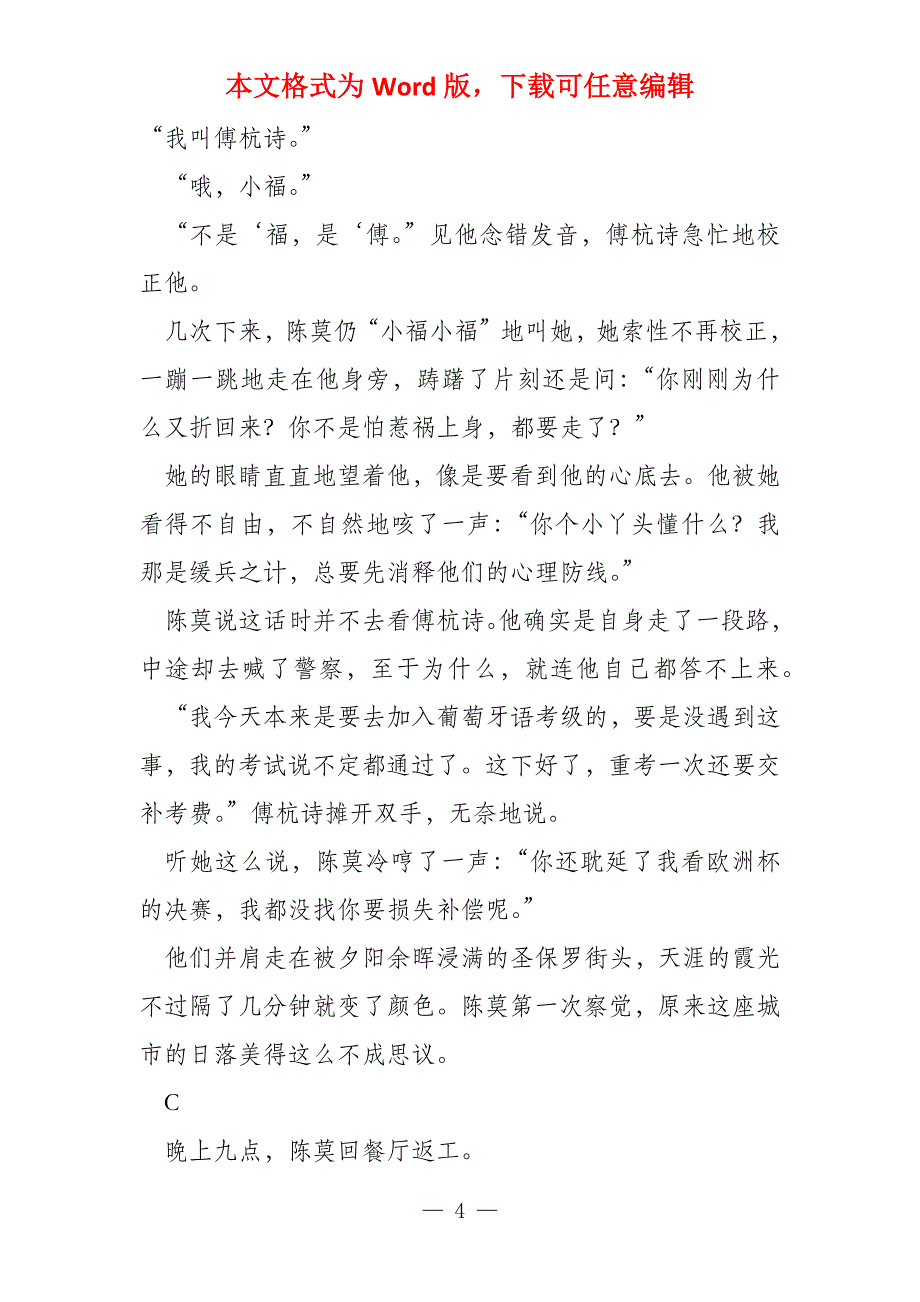 本文格式为 Word 版，下载可任意编辑
“我叫傅杭诗。”
“哦，小福。”
“不是‘福，是‘傅。”见他念错发音，傅杭诗急忙地校
正他。
几次下来，陈莫仍“小福小福”地叫她，她索性不再校正，
一蹦一跳地走在他身旁，踌躇了片刻还是问：“你刚刚为什
么又折回来？你不是怕惹祸上身，都要走了？”
她的眼睛直直地望着他，像是要看到他的心底去。他被她
看得不自由，不自然地咳了一声：“你个小丫头懂什么？我
那是缓兵之计，总要先消释他们的心理防线。”
陈莫说这话时并不去看傅杭诗。他确实是自身走了一段路，
中途却去喊了警察，至于为什么，就连他自己都答不上来。
“我今天本来是要去加入葡萄牙语考级的，要是没遇到这
事，我的考试说不定都通过了。这下好了，重考一次还要交
补考费。”傅杭诗摊开双手，无奈地说。
听她这么说，陈莫冷哼了一声：“你还耽延了我看欧洲杯
的决赛，我都没找你要损失补偿呢。”
他们并肩走在被夕阳余晖浸满的圣保罗街头，天涯的霞光
不过隔了几分钟就变了颜色。陈莫第一次察觉，原来这座城
市的日落美得这么不成思议。
C
晚上九点，陈莫回餐厅返工。
— 4 —